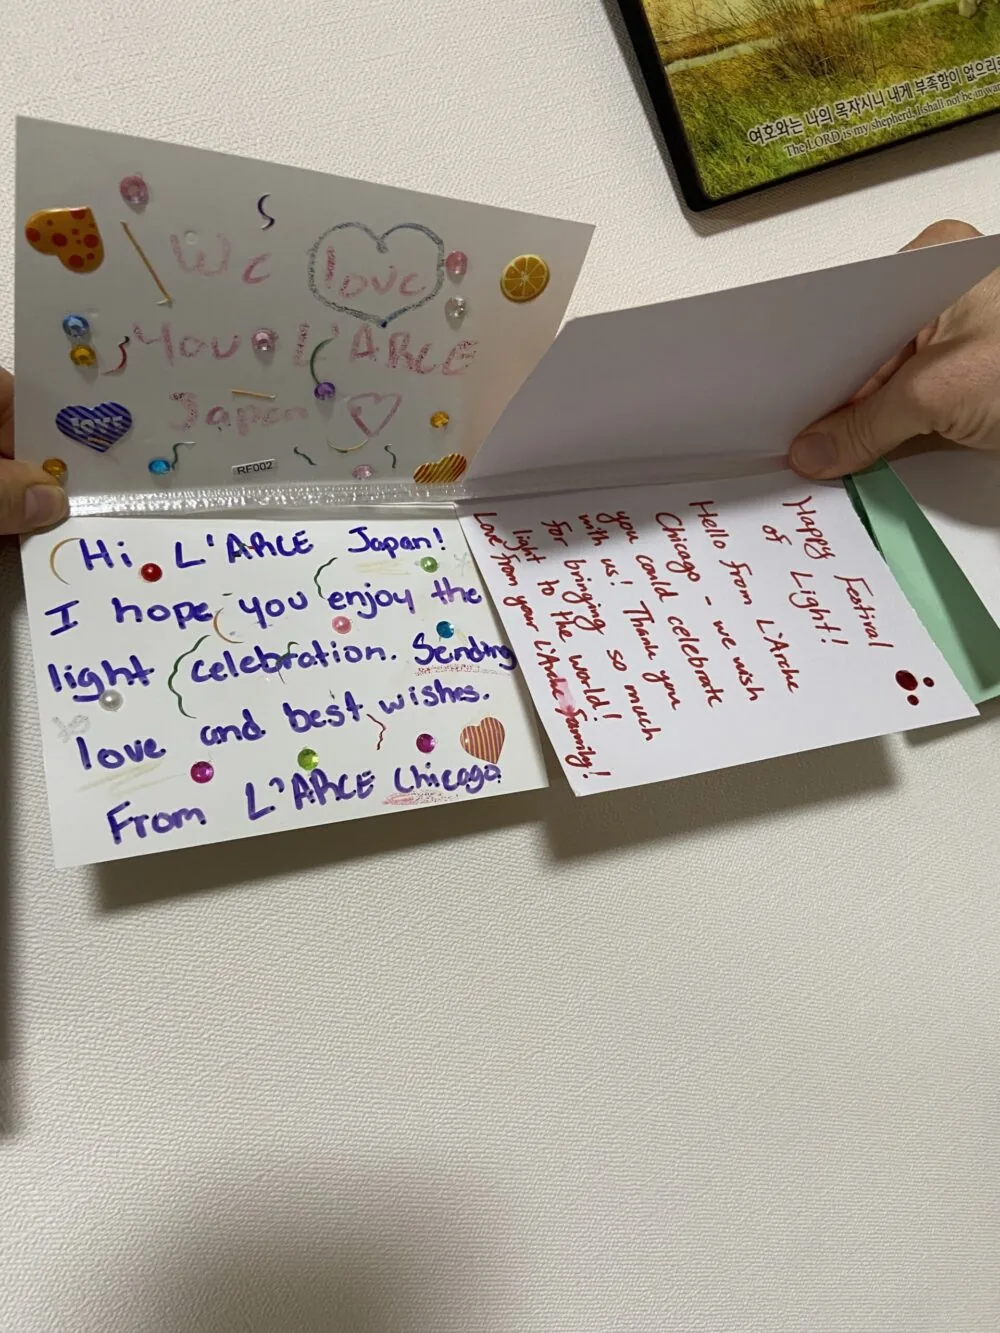 We love
You L'ARCE
Japan
RF002
Hi L'ARCE Japan!
I hope you enjoy the
light celebration. Sending
love and best wishes.
From L'ARCE Chicago
Happy Festival
of Light!
Hello from L'Arche
Chicago - we wish
you could celebrate
with us! Thank you
for bringing so much
light to the world!
Love from your L'Arche family!
여호와는 나의 목자시니 내게 부족함이 없으리로
The LORD is my shepherd, I shall not be in wan